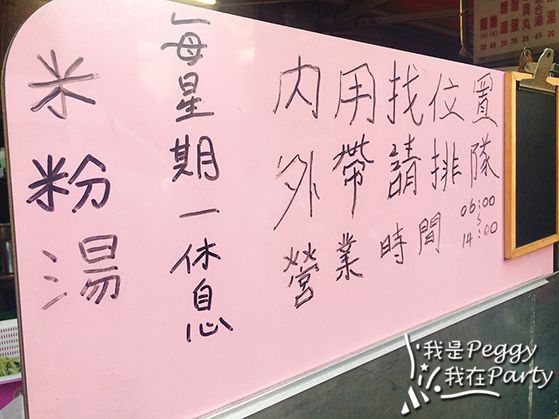 米粉湯
每星期一休息
內用找位置
外帶請排隊
營業時間 06:00
~
14:00
我是Peggy
我在Party